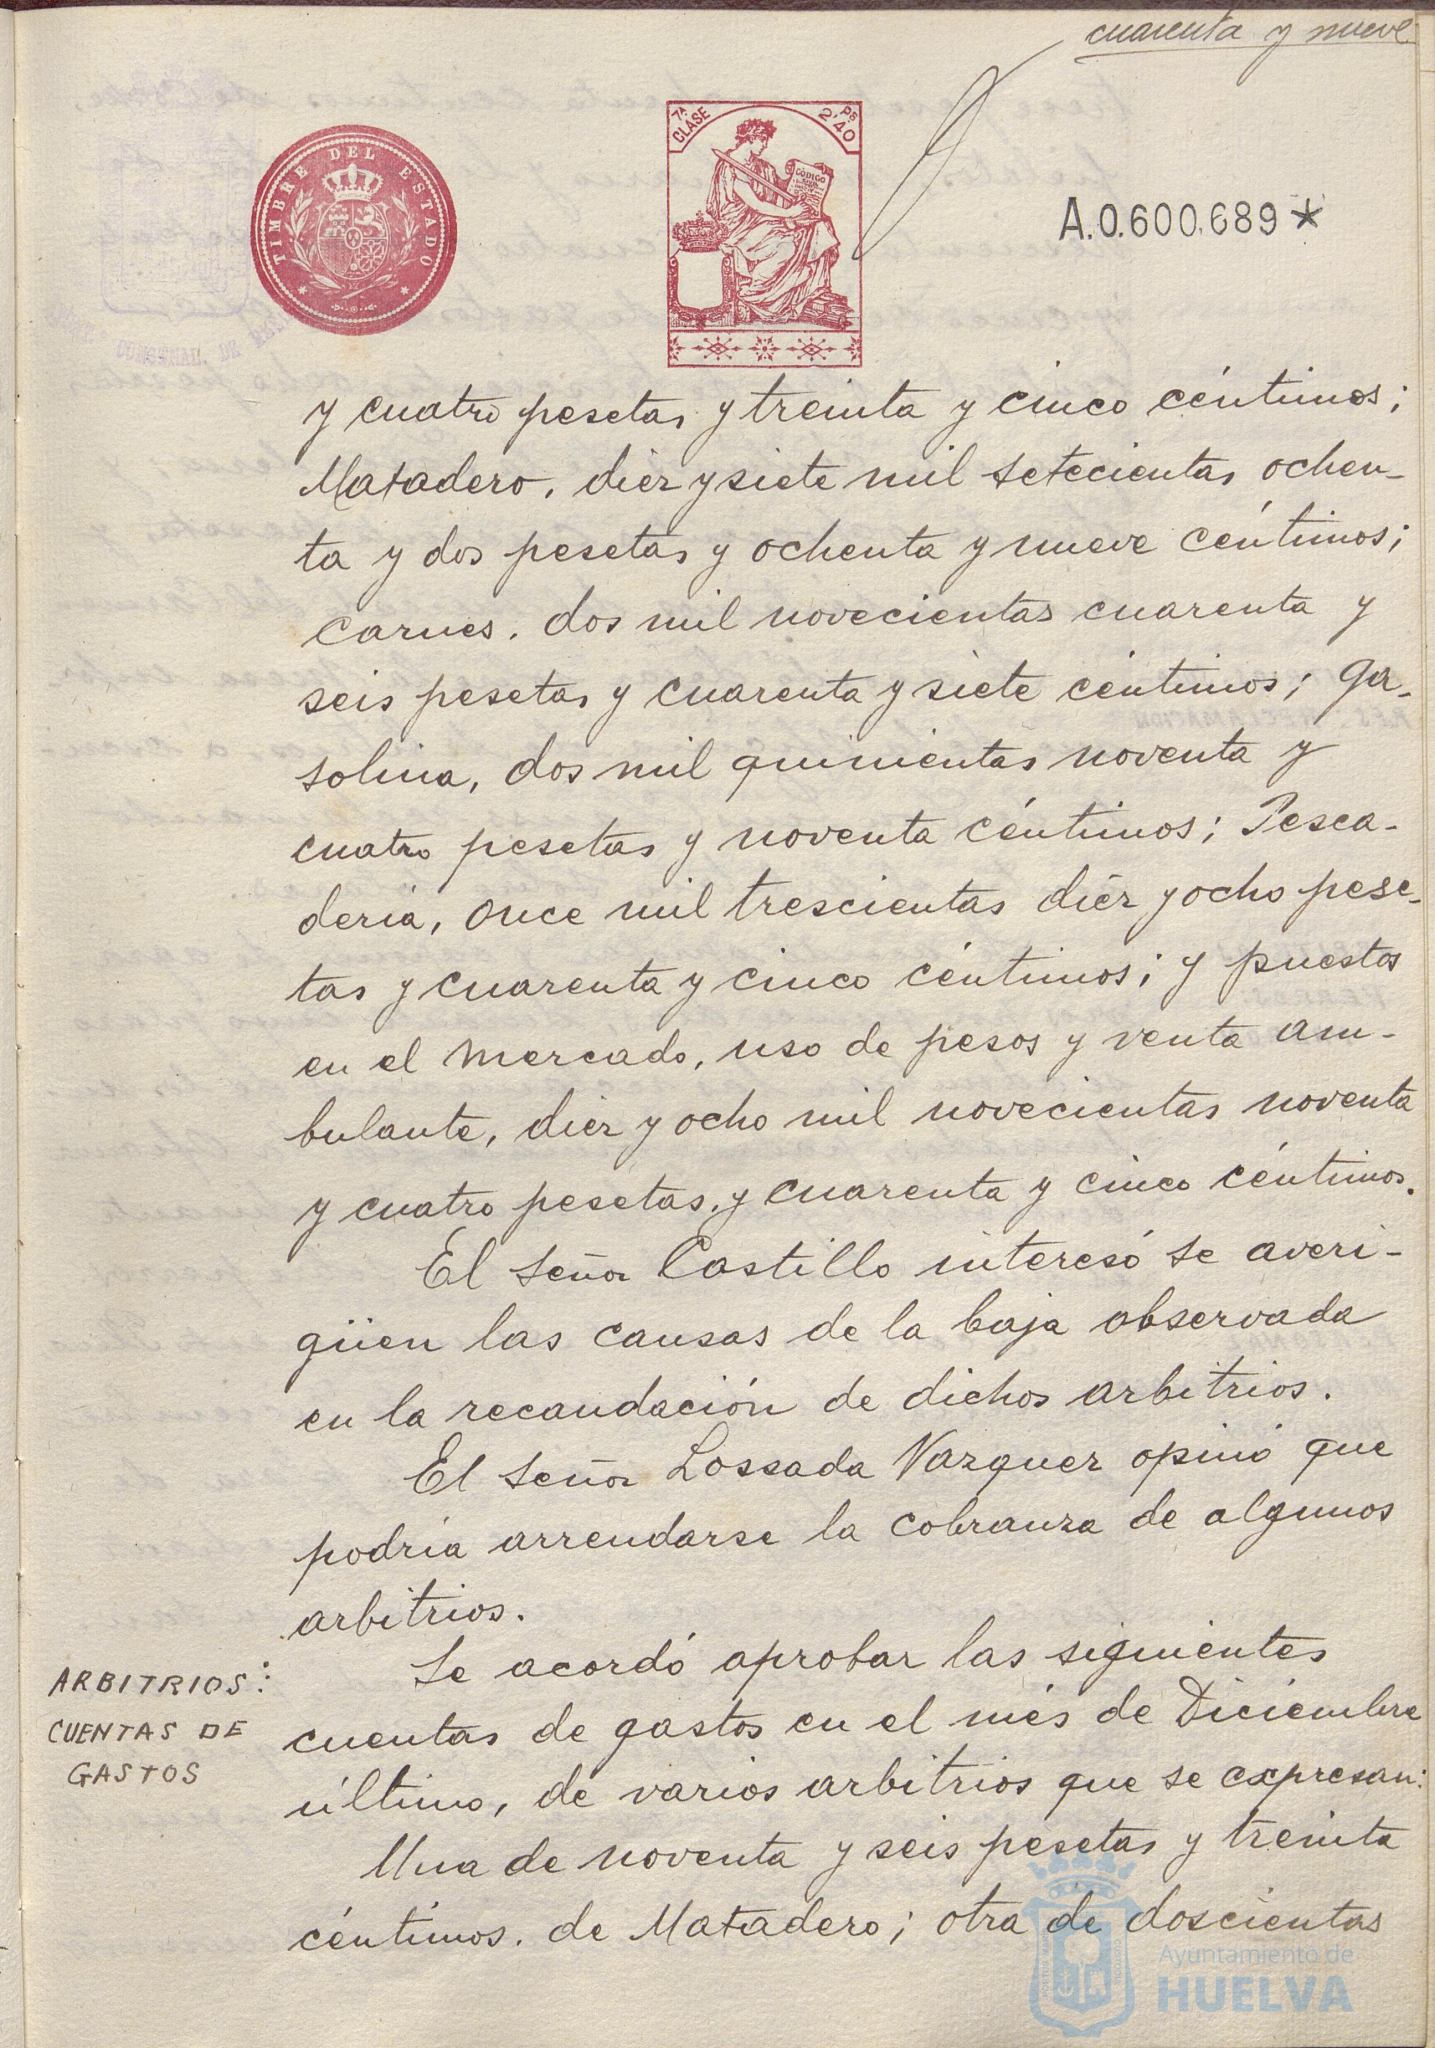 cuarenta y nueve
TIMBRE DEL ESTADO
7ª CLASE
Ps 2'40
CÓDIGO
A.0.600.689*
y cuatro pesetas y treinta y cinco céntimos;
Matadero, diéz y siete mil setecientas ochen-
ta y dos pesetas y ochenta y nueve céntimos;
carnes, dos mil novecientas cuarenta y
seis pesetas y cuarenta y siete céntimos; ga-
solina, dos mil quinientas noventa y
cuatro pesetas y noventa céntimos; Pesca-
deria, once mil trescientas diéz y ocho pese-
tas y cuarenta y cinco céntimos; y puestos
en el mercado, uso de pesos y venta am-
bulante, diéz y ocho mil novecientas noventa
y cuatro pesetas y cuarenta y cinco céntimos.
El señor Castillo interesó se averi-
güen las causas de la baja observada
en la recaudación de dichos arbitrios.
El señor Lossada Vazquez opinó que
podría arrendarse la cobranza de algunos
arbitrios.
ARBITRIOS:
CUENTAS DE
GASTOS
Se acordó aprobar las siguientes
cuentas de gastos en el més de Diciembre
último, de varios arbitrios que se expresan:
Una de noventa y seis pesetas y treinta
céntimos, de Matadero; otra de doscientas
Ayuntamiento de
HUELVA